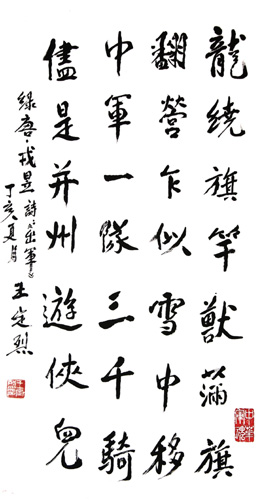 龍繞旗竿獸滿旗
翻營乍似雪中移
中軍一隊三千騎
儘是并州遊俠兒
錄唐·戎昱詩出軍
丁亥夏月
王定烈